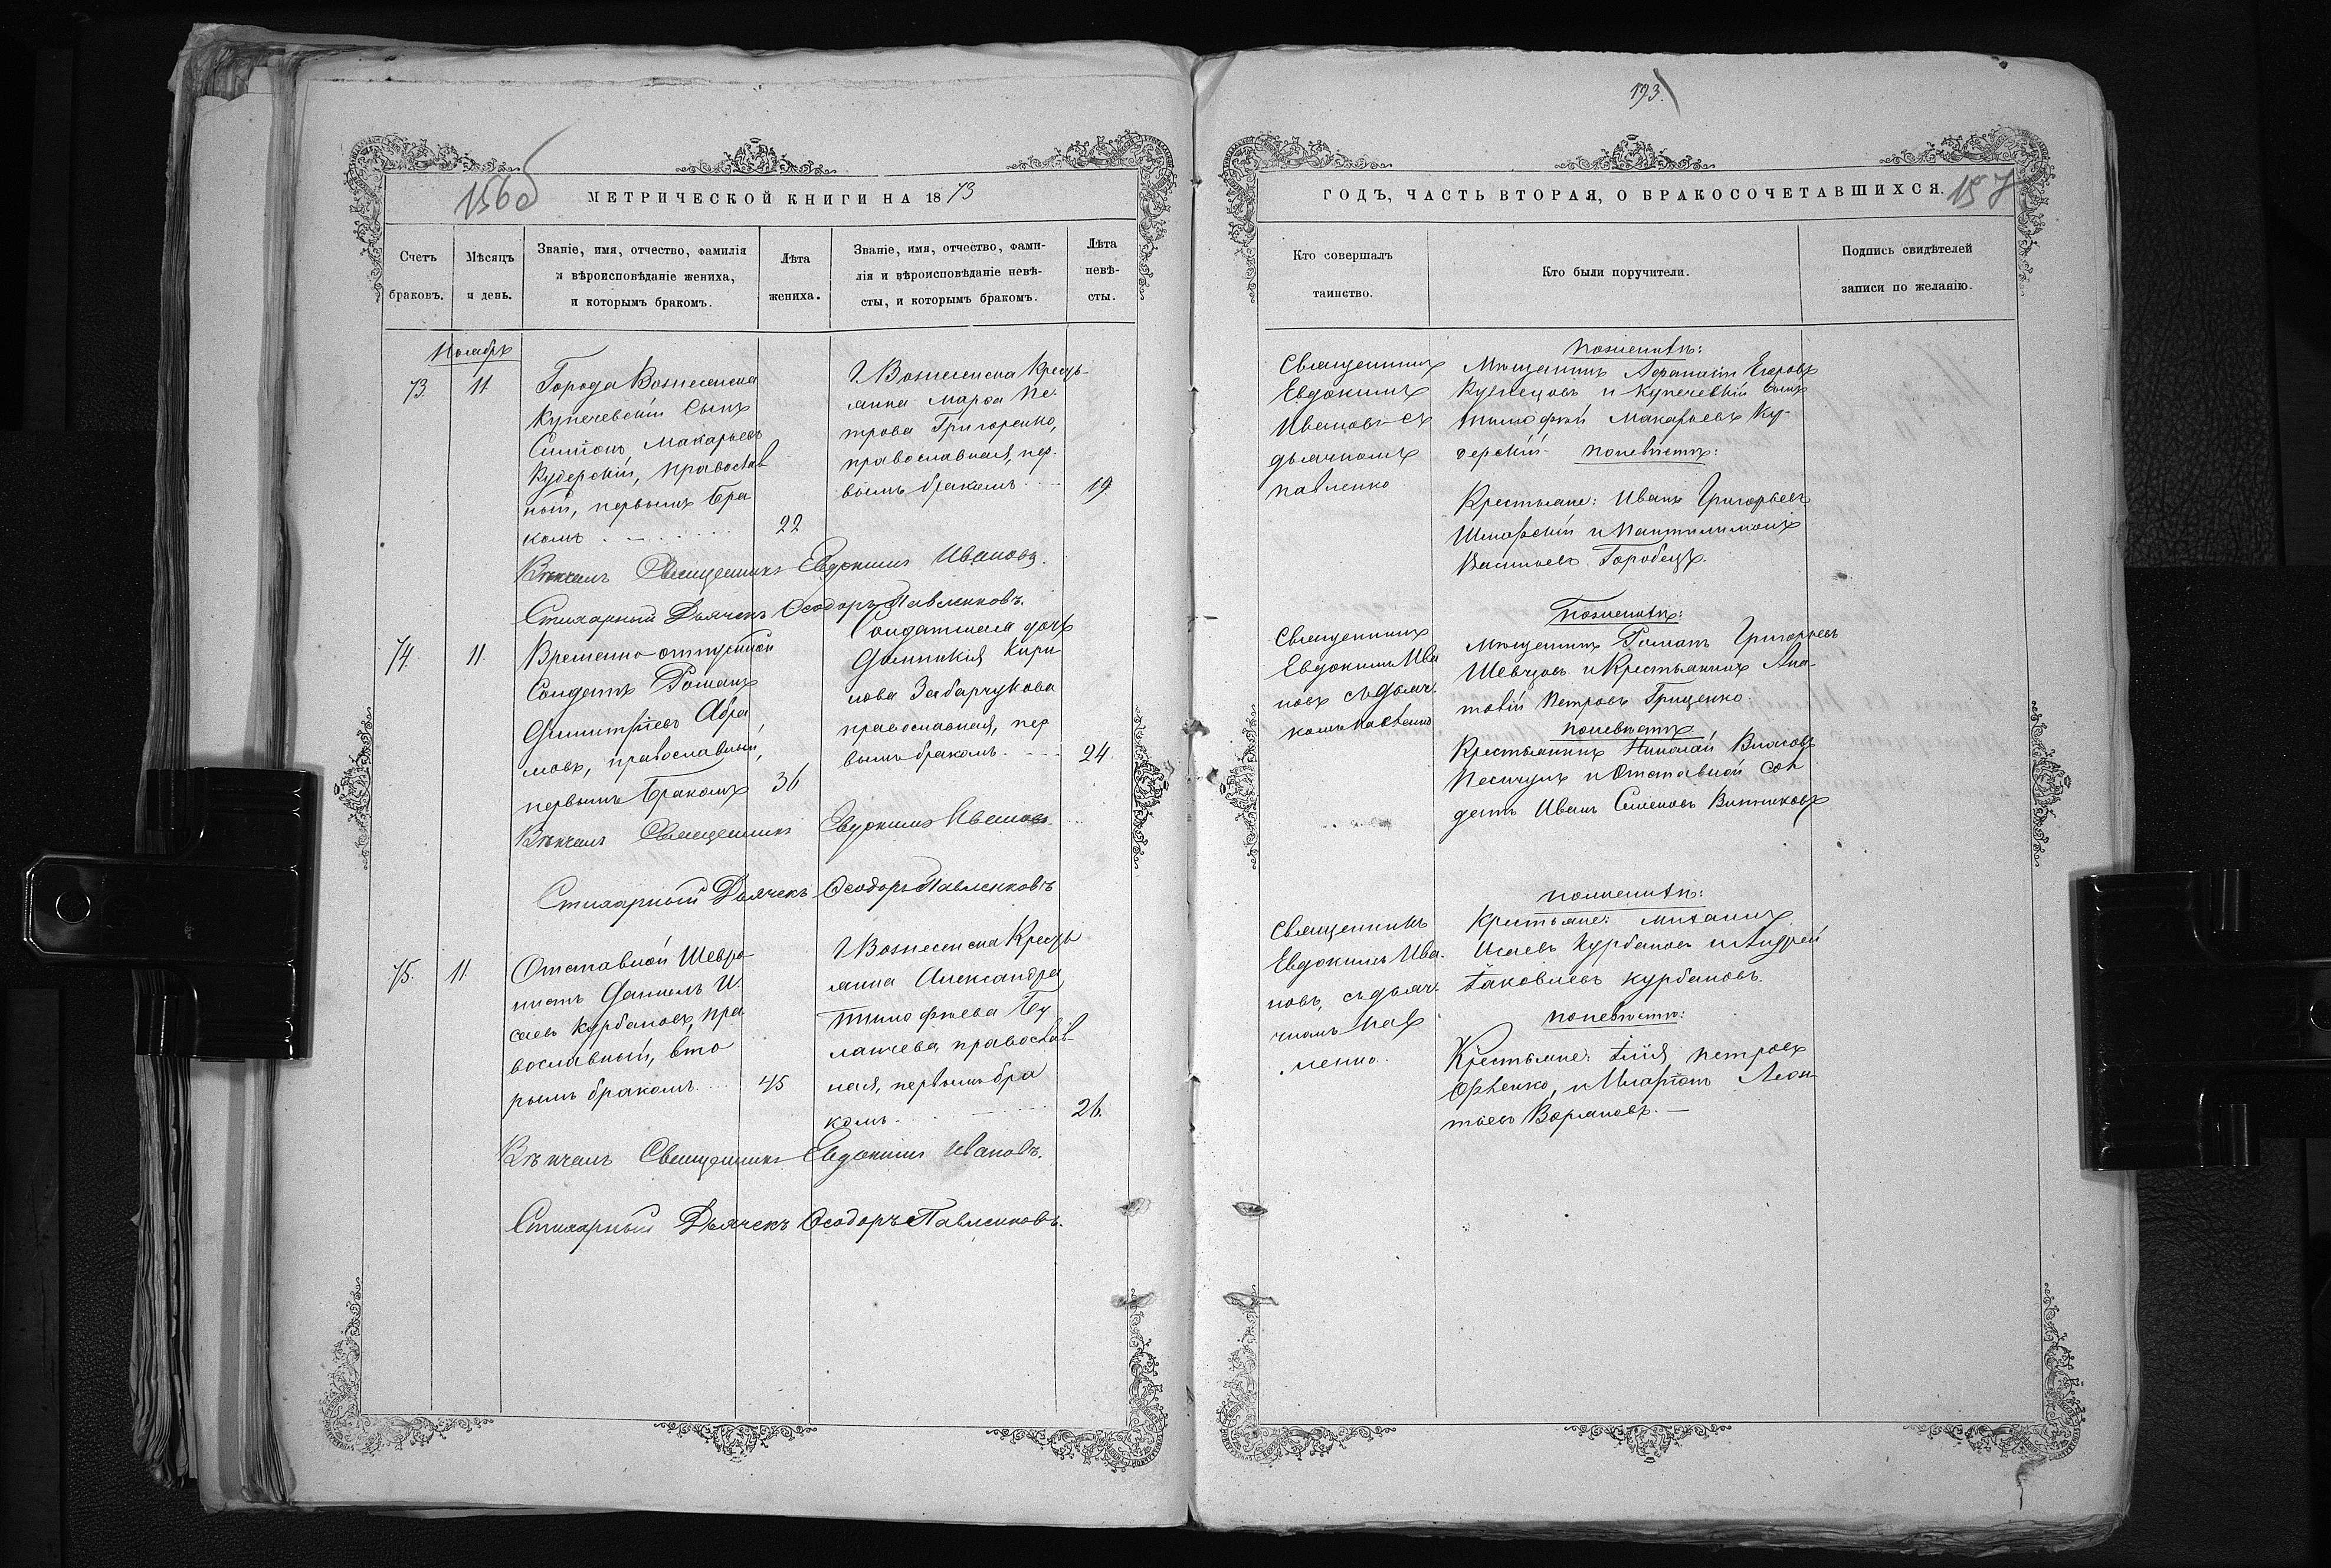 156 об
МЕТРИЧЕСКОЙ КНИГИ НА 1873
Счетъ
браковъ.
Мѣсяцъ
и день.
Званіе, имя, отчество, фамилія
и вѣроисповѣданіе жениха,
и которымъ бракомъ.
Лѣта
жениха.
Званіе, имя, отчество, фами-
лія и вѣроисповѣданіе невѣ-
сты, и которымъ бракомъ.
Лѣта
невѣ-
сты.
Ноябрь
73. 11
Города Вознесенска
Купеческій Сынъ
Симеонъ Макарьевъ
Кудерскій, православ
ный, первымъ бра
комъ
22
Г. Вознесенска Кресть-
янка Марѳа Пе-
трова Григоренко,
православная, пер-
вымъ бракомъ
19
Вѣнчалъ Священникъ Евдокимъ Ивановъ.
Стихарный Дьячекъ Ѳеодоръ Павленковъ.
74. 11.
Временно отпускной
Солдатъ Романъ
Димитріевъ Абра
мовъ, православный,
первымъ бракомъ
36
Солдатская дочь
Домникія Кири
лова Забарчукова
православная, пер
вымъ бракомъ
24.
Вѣнчалъ Священникъ Евдокимъ Ивановъ
Стихарный Дьячекъ Ѳеодоръ Павленковъ
75. 11.
Отставной Шевро-
нистъ Даніилъ И.
саевъ Курбановъ, пра
вославный, вто
рымъ бракомъ
45
Г. Вознесенска Кресть
янка Александра
Тимофѣева Бу
православ-
ная, первымъ бра
комъ
26.
Вѣнчалъ Священникъ Евдокимъ Ивановъ.
Стихарный Дьячекъ Ѳеодоръ Павленковъ.
193.
157
ГОДЪ, ЧАСТЬ ВТОРАЯ, О БРАКОСОЧЕТАВШИХСЯ.
Кто совершалъ
таинство.
Кто были поручители.
Подпись свидѣтелей
записи по желанію.
Священникъ
Евдокимъ
Ивановъ съ
дьячкомъ
Павленко
Поженихѣ:
Мѣщанинъ Афанасій Егоровъ
Кузнецовъ и Купеческій сынъ
Тимофей Макарьевъ Ку-
дерскій. Поневѣстѣ:
Крестьяне: Иванъ Григорьевъ
и Пантилимонъ
Васильевъ Горобецъ.
Священникъ
Евдокимъ Ива
новъ съ дьяч.
комъ Павленко
Поженихѣ:
Мѣщанинъ Романъ Григорьевъ
Шевцовъ и Крестьянинъ Ана-
толій Петровъ Гриценко
Поневѣстѣ
Крестьянинъ Николай Власовъ
и Отставной сол
датъ Иванъ Семеновъ Винниковъ
Священникъ
Евдокимъ Ива.
новъ, съ дьяч.
комъ Пав
ленко.
Поженихѣ:
Крестьяне: Михаилъ
Исаевъ Курбановъ и Андрей
Іаковлевъ Курбановъ.
Поневѣстѣ:
Крестьяне: Илія Петровъ
и Леон-
тьевъ